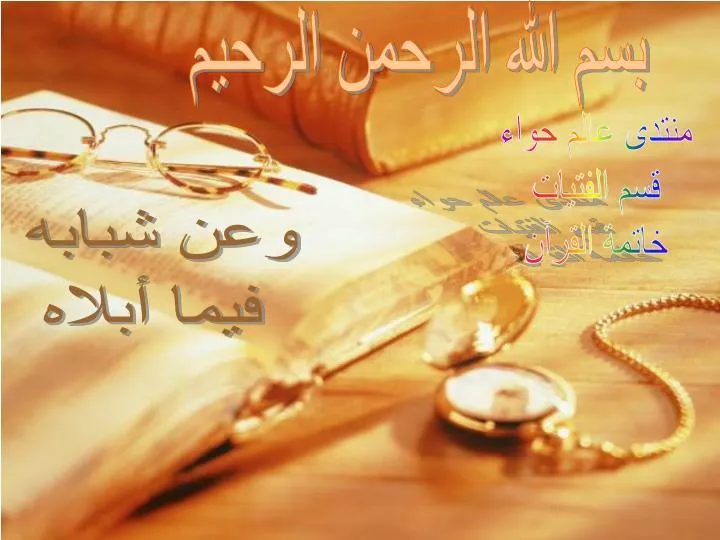 بسم الله الرحمن الرحيم
منتدى عالم حواء
قسم الفتيات
خاتمة القرآن
وعن شبابه
فيما أبلاه